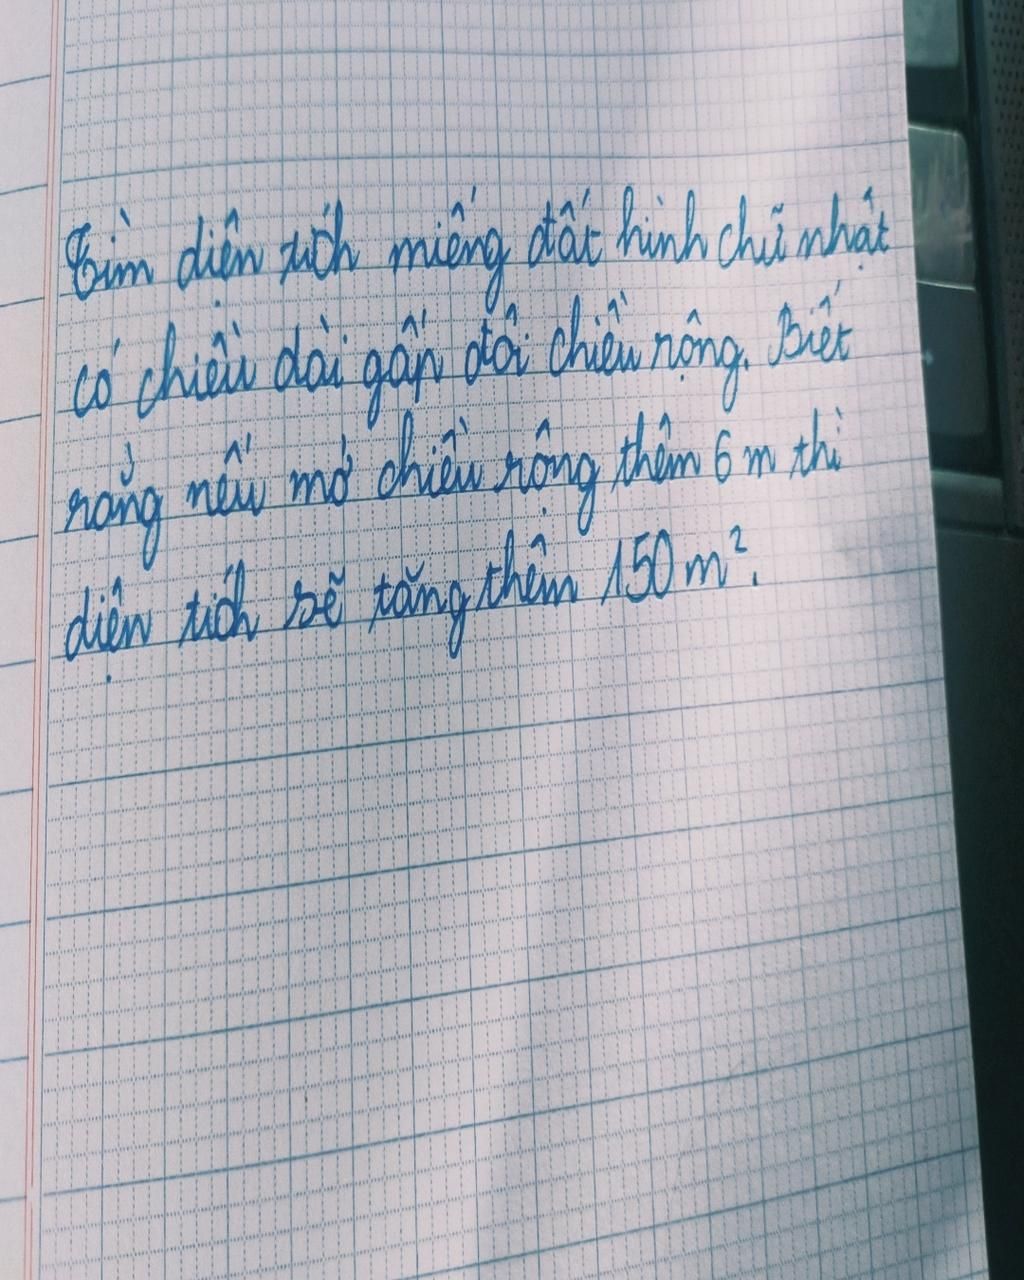 Tìm diện tích miếng đất hình chữ nhật
có chiều dài gấp đôi chiều rộng. Biết
rằng nếu mở chiều rộng thêm 6 m thì
diện tích sẽ tăng thêm 150 m².